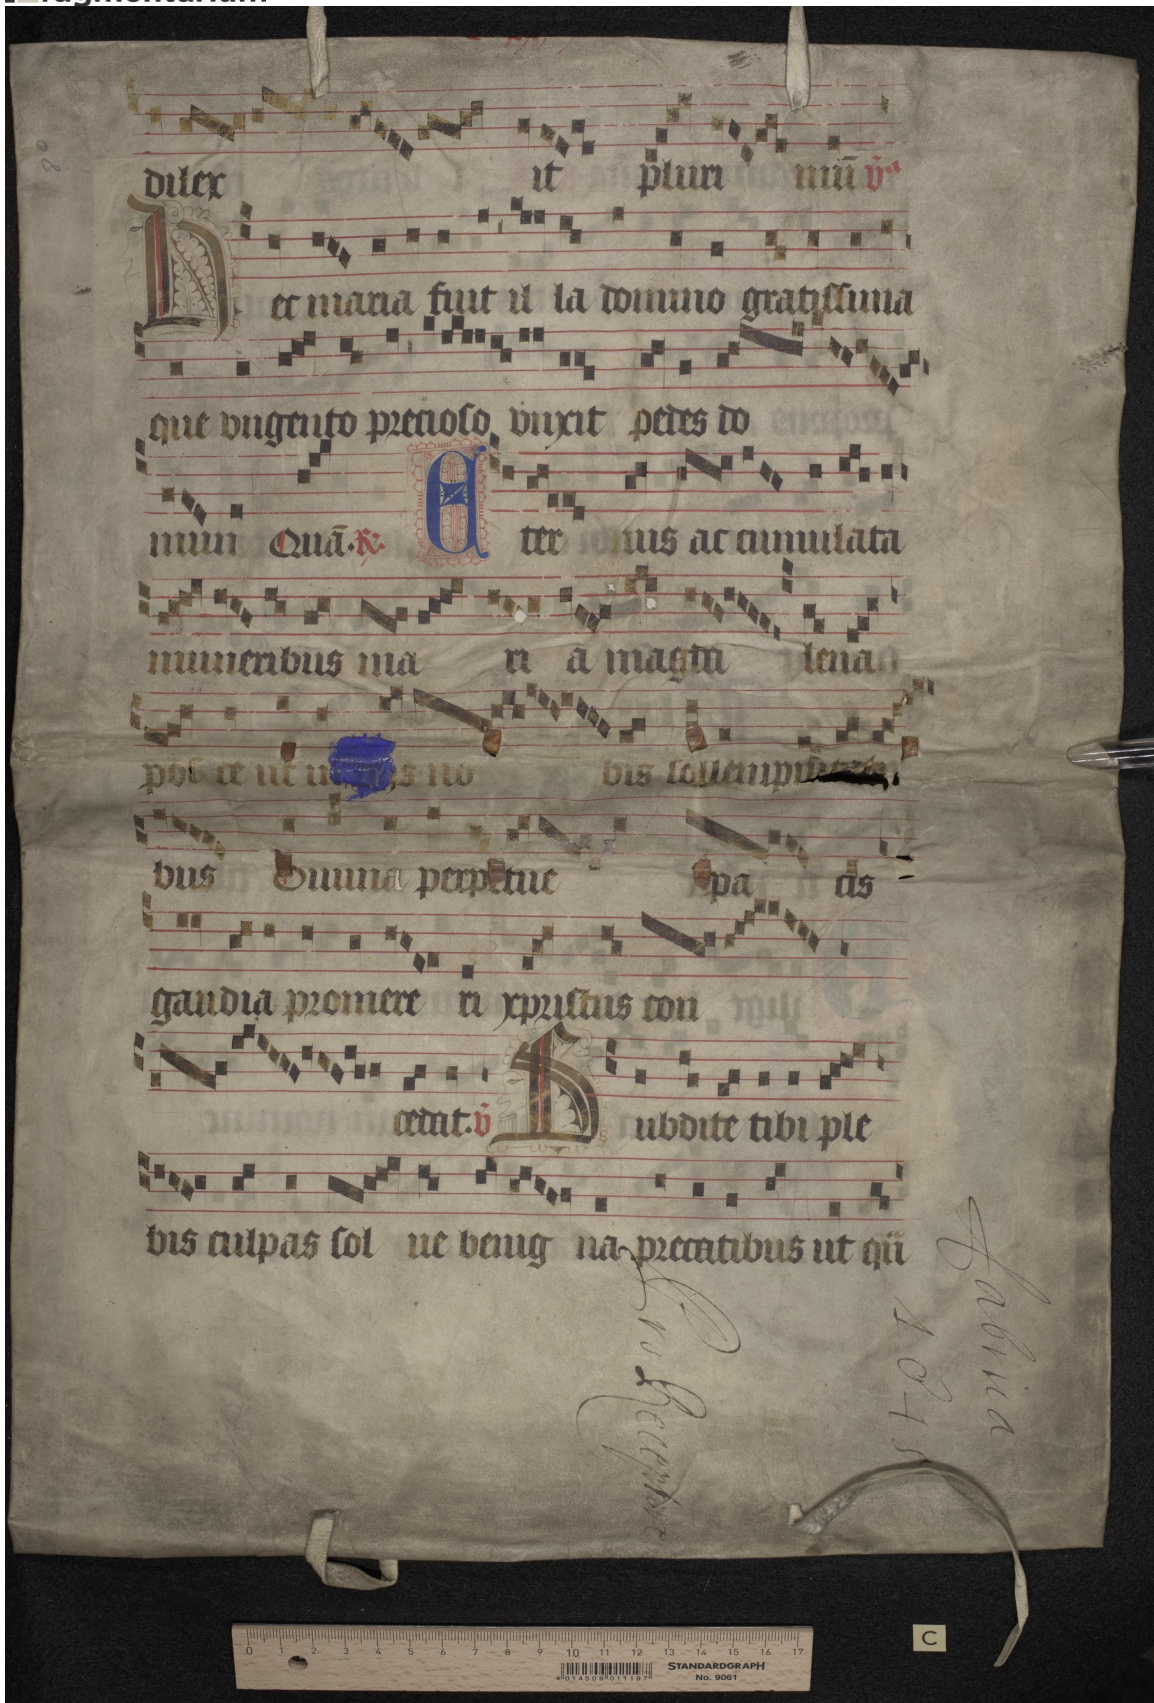 dilex it pluri mu̅ v̉
Hec maria fuit il la domino gratissima
que vngento precioso vnxit pedes do
mini Qua̅. R. Eter nus ac cumulata
muneribus ma ri a magda lena
pos ce ut no bis sollempni
bus Omnia perpetue pa cis
gaudia promere ri xpristus con
cedat. v̉ Subdite tibi ple
bis culpas sol ue benig na precatibus ut qui
0 1 2 3 4 5 6 7 8 9 10 11 12 13 14 15 16 17
STANDARDGRAPH
No. 9061
4 014509 011197
C